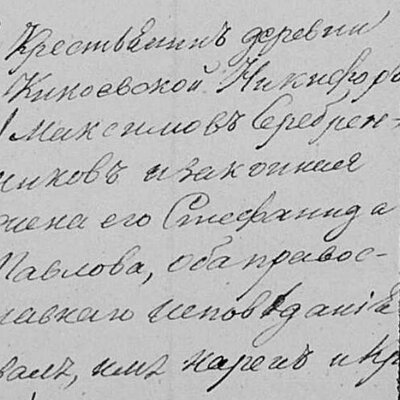 Крестьянинъ деревни
Киноевской Никифоръ
Максимовъ Серебрен-
никовъ и законная
жена его Стефанида
Павлова, оба правос-
лавнаго исповѣданія
имъ наречъ и кр